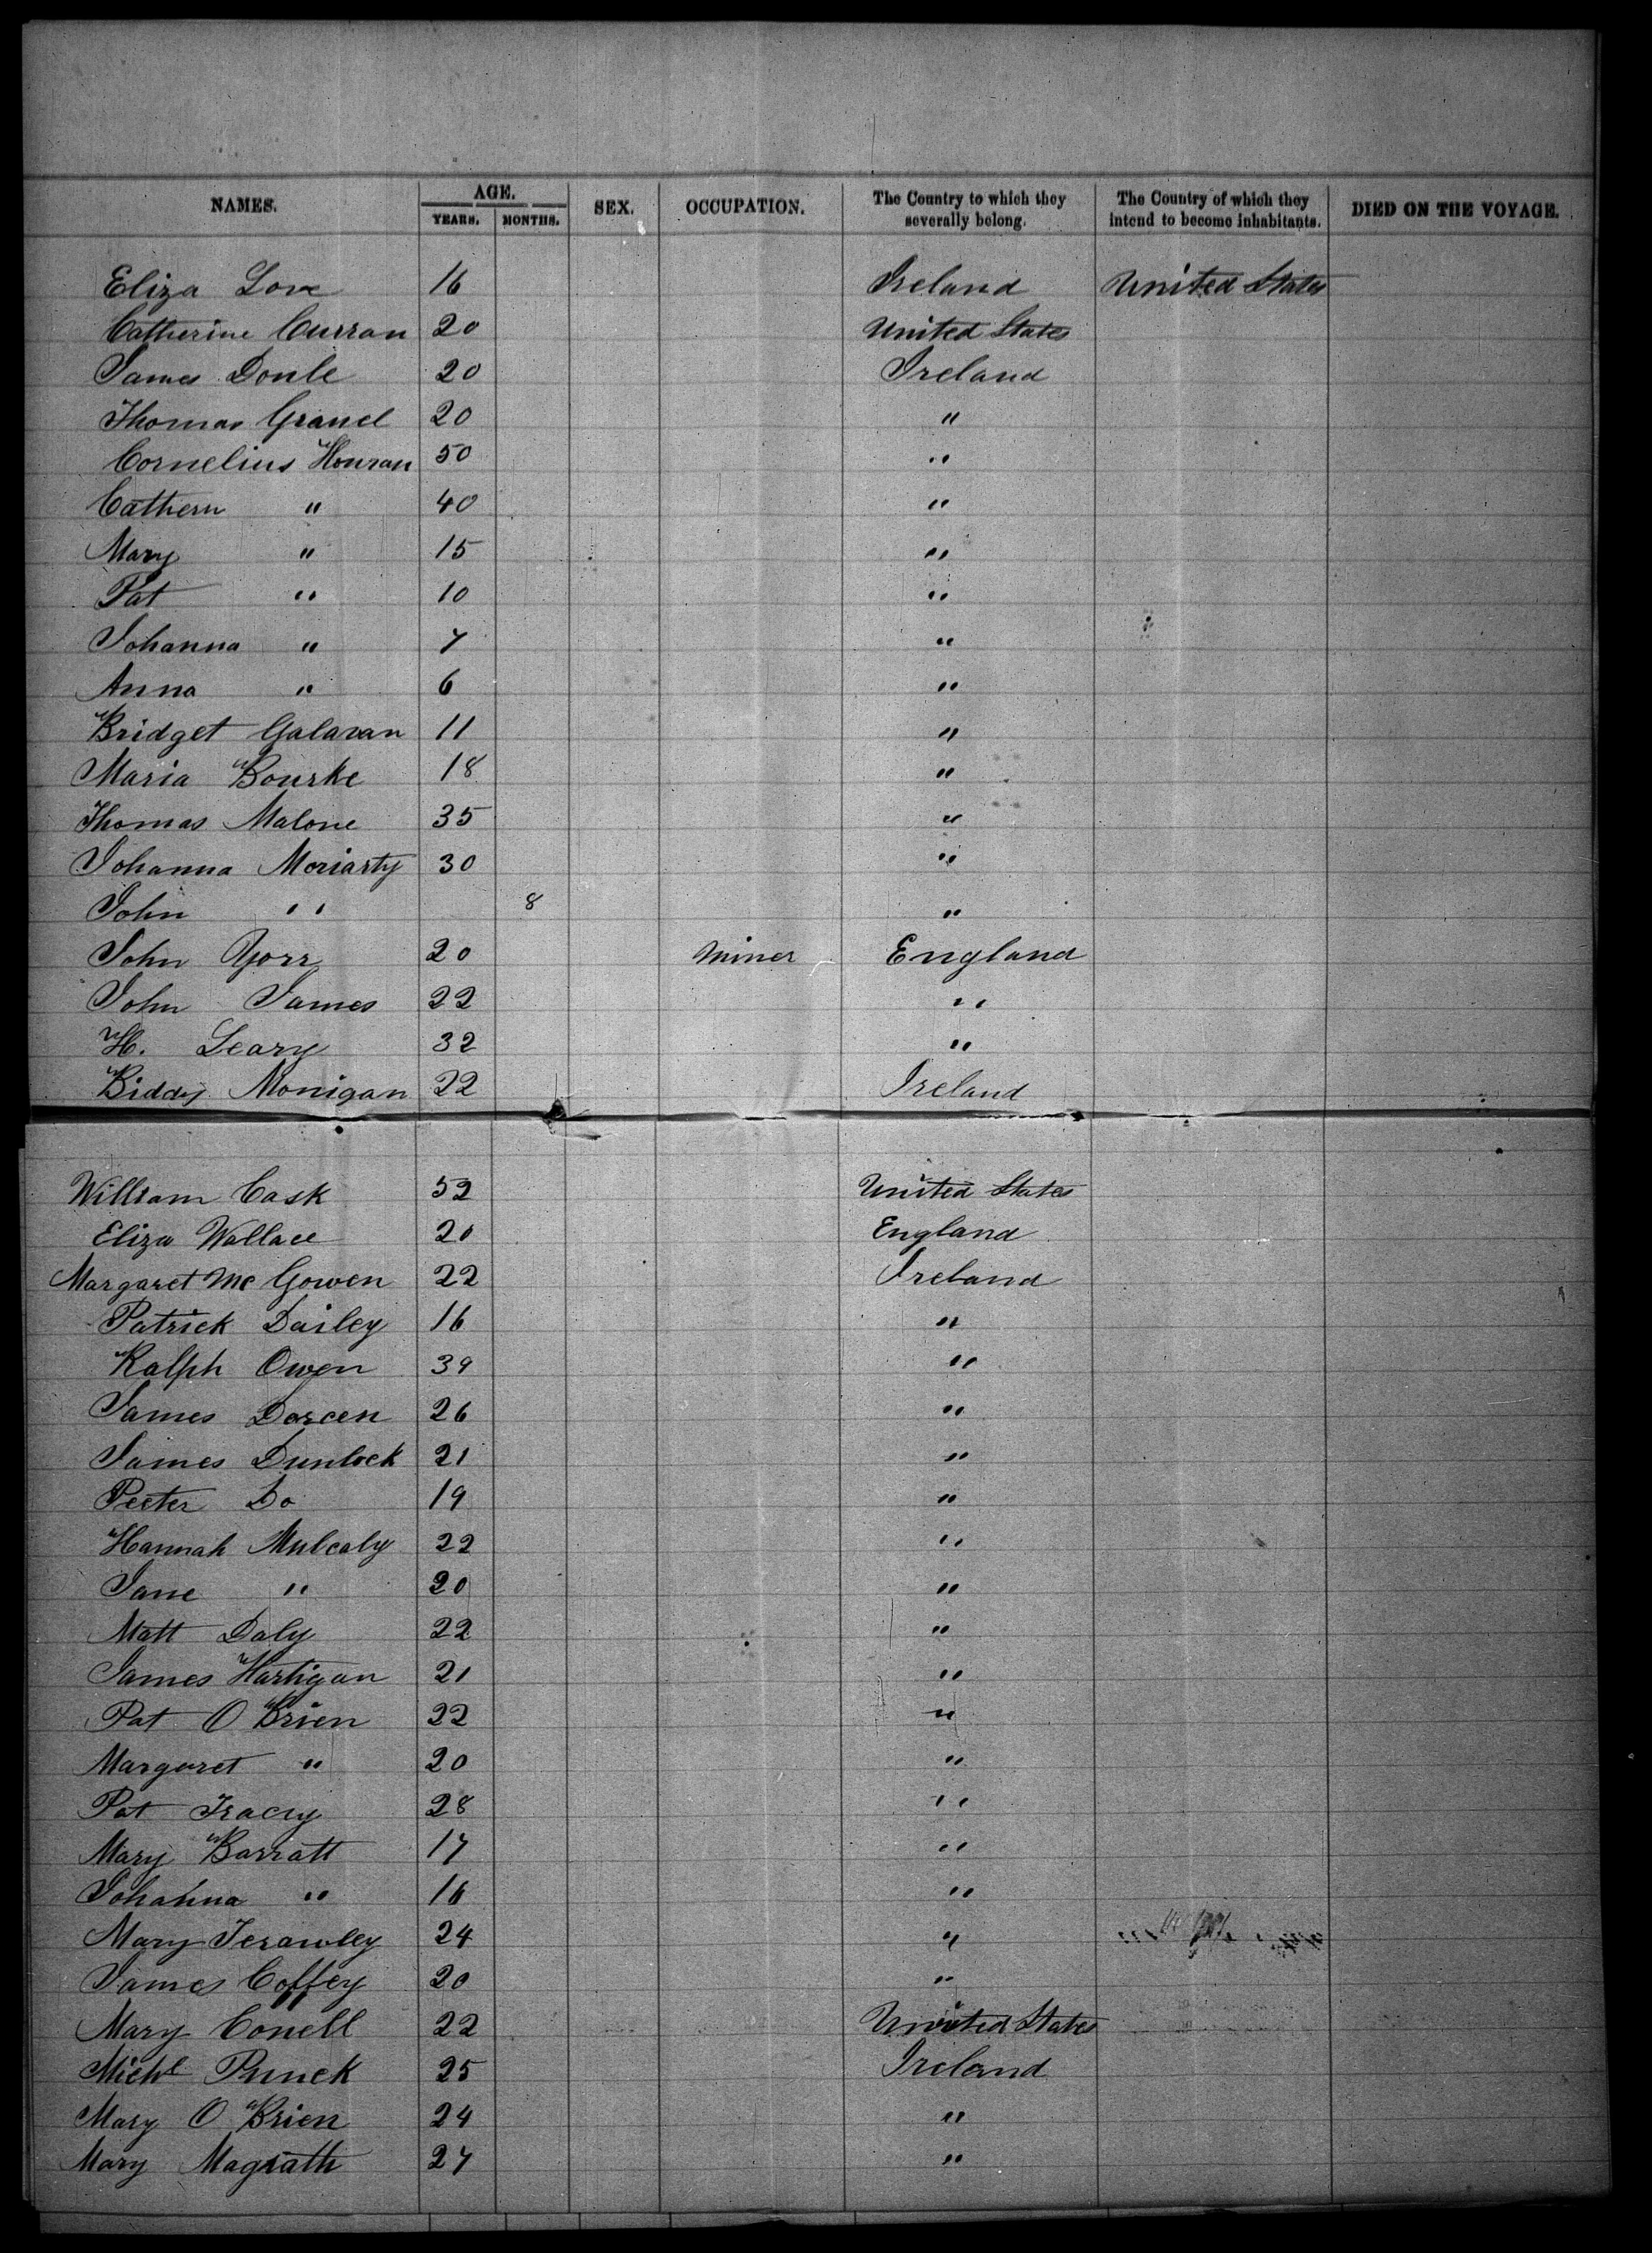 NAMES. AGE. YEARS. MONTHS. SEX. OCCUPATION. The Country to which they severally belong. The Country of which they intend to become inhabitants. DIED ON THE VOYAGE.
Eliza Love 16 Ireland United States
Catherine Curran 20 United States
James Donle 20 Ireland
Thomas Grancl 20 "
Cornelius Houran 50 "
Cathern " 40 "
Mary " 15 "
Pat " 10 "
Johanna " 7 "
Anna " 6 "
Bridget Galavan 11 "
Maria Bourke 18 "
Thomas Malone 35 "
Johanna Moriarty 30 "
John " 8 "
John Yorr 20 Miner England
John James 22 "
H. Leary 32 "
Biddy Monigan 22 Ireland
William Cask 52 United States
Eliza Wallace 20 England
Margaret Mc Gowen 22 Ireland
Patrick Dailey 16 "
Ralph Owen 39 "
James Dorcen 26 "
James Dunlock 21 "
Peeter Do 19 "
Hannah Mulcaly 22 "
Jane " 20 "
Matt Daly 22 "
James Hartigan 21 "
Pat O Brien 22 "
Margaret " 20 "
Pat Tracy 28 "
Mary Barratt 17 "
Johanna " 16 "
Mary Terawley 24 "
James Coffey 20 "
Mary Conell 22 United States
Michl Punck 25 Ireland
Mary O Brien 24 "
Mary Magrath 27 "